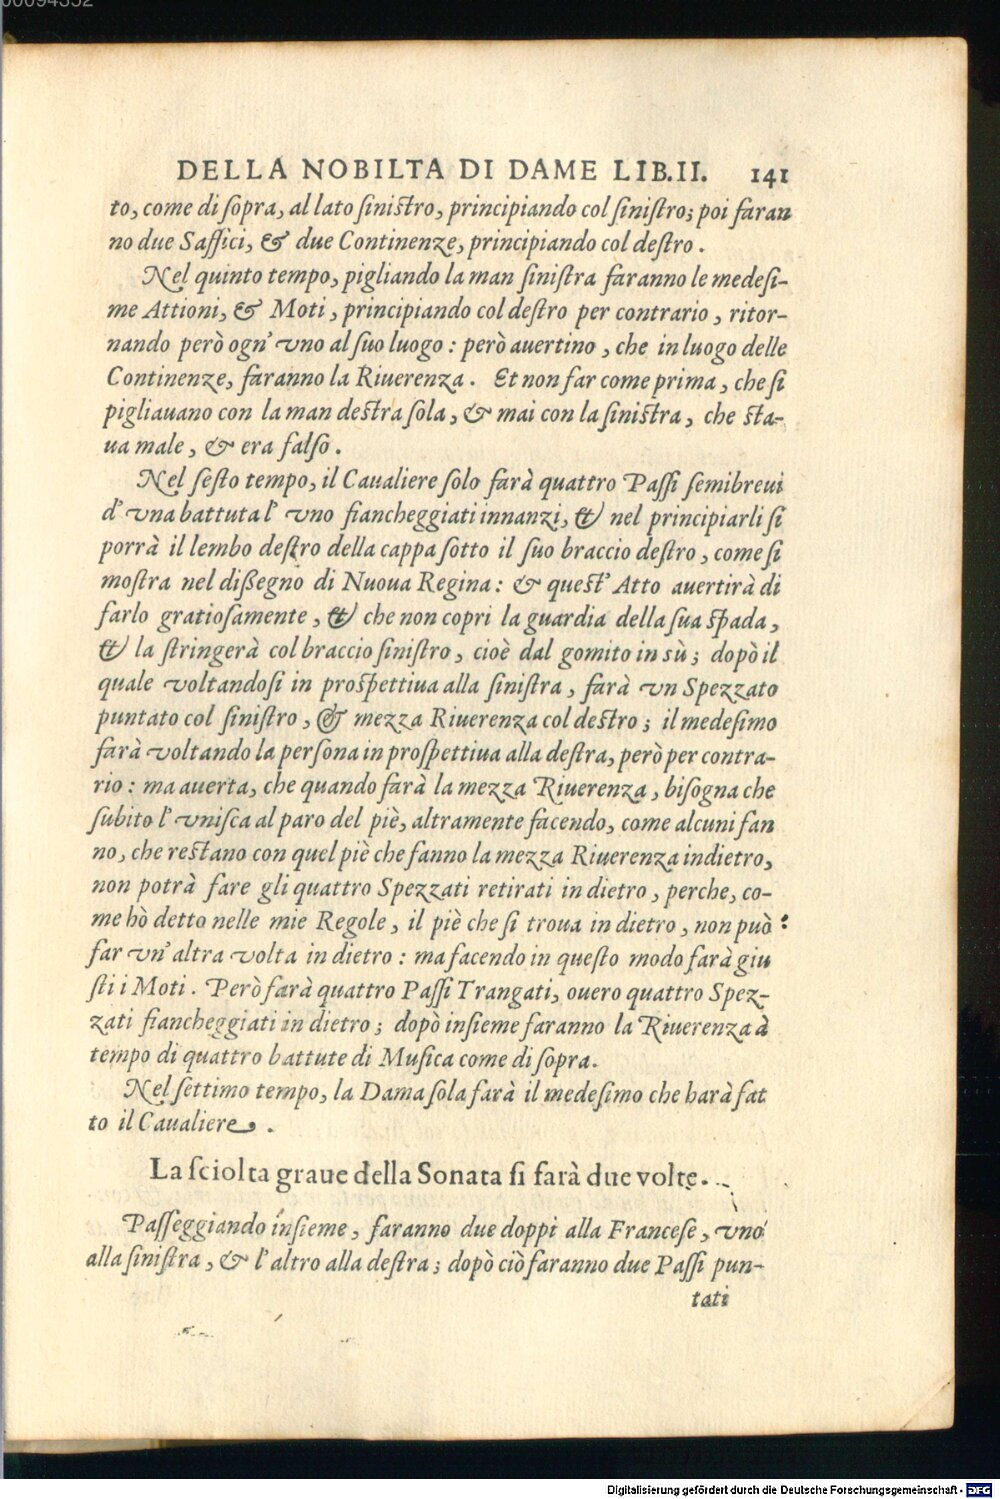 00094352
DELLA NOBILTA DI DAME LIB.II. 141
to, come di ſopra, al lato ſiniſtro, principiando col ſiniſtro; poi faran
no due Saffici, & due Continenze, principiando col deſtro.
Nel quinto tempo, pigliando la man ſiniſtra faranno le medeſi-
me Attioni, & Moti, principiando col deſtro per contrario, ritor-
nando però ogn' vno al ſuo luogo: però auertino, che in luogo delle
Continenze, faranno la Riuerenza. Et non far come prima, che ſi
pigliauano con la man deſtra ſola, & mai con la ſiniſtra, che ſta-
ua male, & era falſo.
Nel ſeſto tempo, il Caualiere ſolo farà quattro Paſſi ſemibreui
d' vna battuta l' vno fiancheggiati innanzi, & nel principiarli ſi
porrà il lembo deſtro della cappa ſotto il ſuo braccio deſtro, come ſi
moſtra nel dißegno di Nuoua Regina: & queſt' Atto auertirà di
farlo gratioſamente, & che non copri la guardia della ſua ſpada,
& la ſtringerà col braccio ſiniſtro, cioè dal gomito in sù; dopò il
quale voltandoſi in proſpettiua alla ſiniſtra, farà vn Spezzato
puntato col ſiniſtro, & mezza Riuerenza col deſtro; il medeſimo
farà voltando la perſona in proſpettiua alla deſtra, però per contra-
rio: ma auerta, che quando farà la mezza Riuerenza, biſogna che
ſubito l' vniſca al paro del piè, altramente facendo, come alcuni fan
no, che reſtano con quel piè che fanno la mezza Riuerenza indietro,
non potrà fare gli quattro Spezzati retirati in dietro, perche, co-
me hò detto nelle mie Regole, il piè che ſi troua in dietro, non può
far vn' altra volta in dietro: ma facendo in queſto modo farà giu
ſti i Moti. Però farà quattro Paſſi Trangati, ouero quattro Spez-
zati fiancheggiati in dietro; dopò inſieme faranno la Riuerenza à
tempo di quattro battute di Muſica come di ſopra.
Nel ſettimo tempo, la Dama ſola farà il medeſimo che harà fat
to il Caualiere.
La ſciolta graue della Sonata ſi farà due volte.
Paſſeggiando inſieme, faranno due doppi alla Franceſe, vno
alla ſiniſtra, & l' altro alla deſtra; dopò ciò faranno due Paſſi pun-
tati
Digitalisierung gefördert durch die Deutsche Forschungsgemeinschaft - DFG